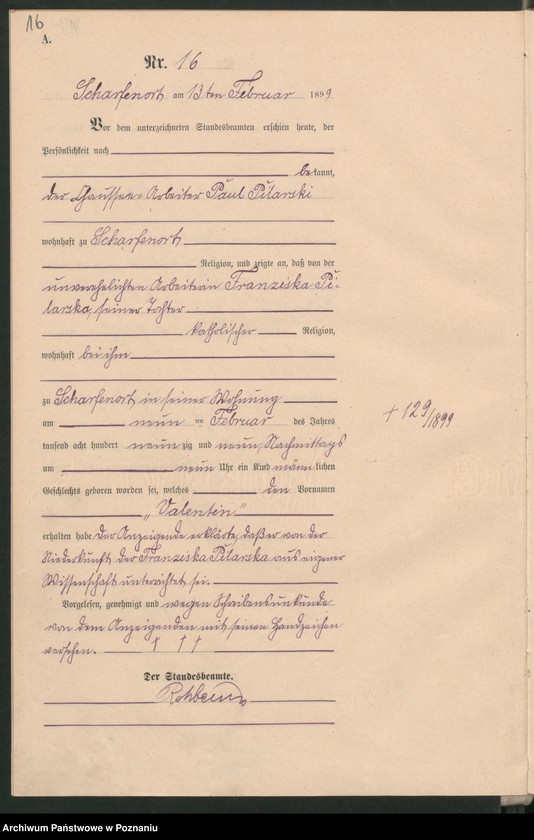 16
A.
Nr. 16
Scharfenort am 13ten Februar 1899
Vor dem unterzeichneten Standesbeamten erschien heute, der
Persönlichkeit nach
bekannt,
der Chaussee-Arbeiter Paul Pilarski
wohnhaft zu Scharfenort
Religion, und zeigte an, daß von der
unverehelichten Arbeiterin Franziska Pi-
larska, seiner Tochter
katholischer Religion,
wohnhaft bei ihm
zu Scharfenort in seiner Wohnung
am neun ten Februar des Jahres
tausend acht hundert neunzig und neun, Nachmittags
um neun Uhr ein Kind männlichen
Geschlechts geboren worden sei, welches den Vornamen
„Valentin"
erhalten habe. Der Anzeigende erklärte, daß er von der
Niederkunft der Franziska Pilarska aus eigener
Wissenschaft unterrichtet sei.
Vorgelesen, genehmigt und wegen Schreibensunkunde
von dem Anzeigenden mit seinen Handzeichen
versehen. † † †
Der Standesbeamte.
+ 129/1899
Archiwum Państwowe w Poznaniu